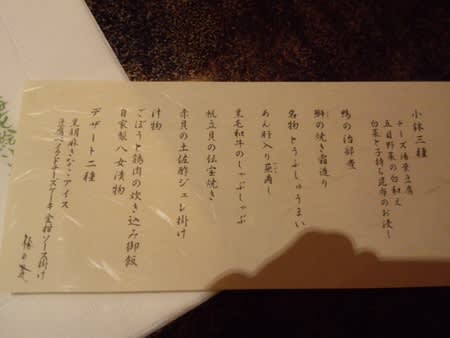 小鉢三種
チーズ湯葉豆腐
五目野菜の白和え
白菜と子持ち昆布のお浸し
鴨の治部煮
鰤の焼き霜造り
名物とうふしゅうまい
あん肝入り蕪蒸し
黒毛和牛のしゃぶしゃぶ
帆立貝の伝宝焼き
赤貝の土佐酢ジュレ掛け
汁物
ごぼうと鶏肉の炊き込み御飯
自家製八女漬物
デザート二種
黒胡麻きなこアイス
豆腐ベイクドチーズケーキ 金柑ソース掛け